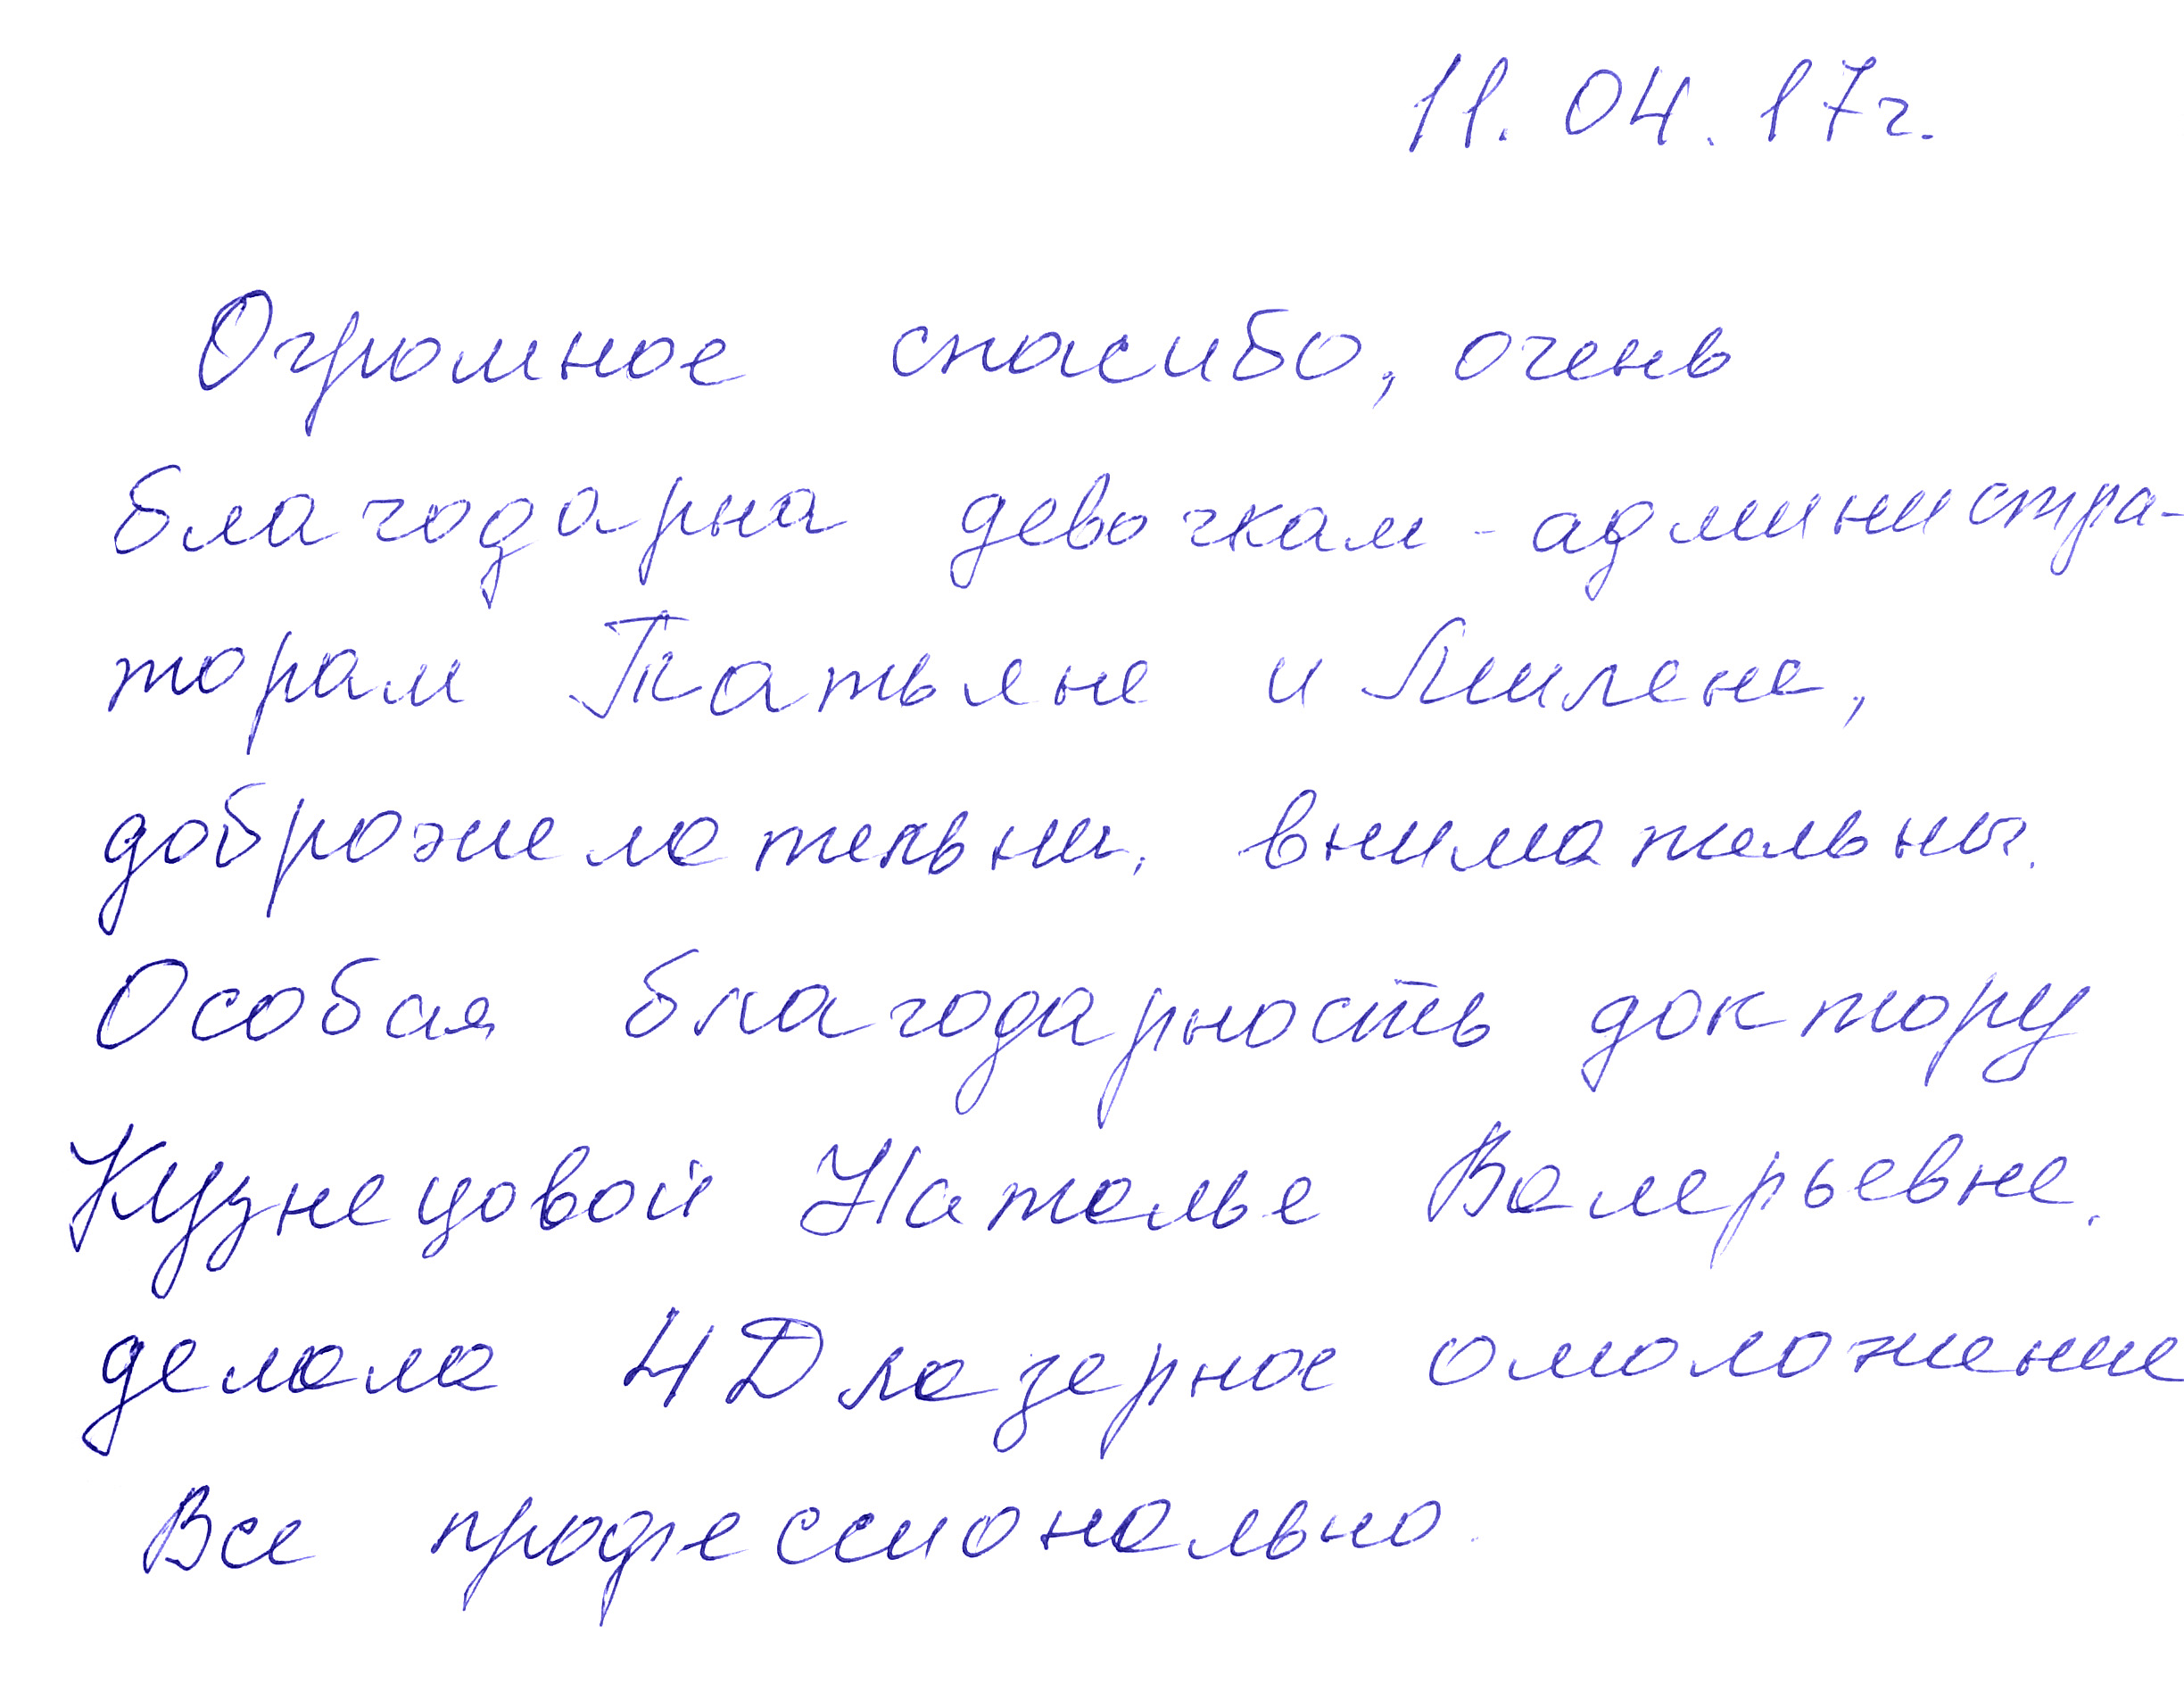 11.04.17г.
Огромное спасибо, очень
благодарна девочкам - администра-
торам Татьяне и Милене,
доброжелательны, внимательны.
Особая благодарность доктору
Кузнецовой Наталье Валерьевне.
делала 4D лазерное омоложение
Все профессионально.